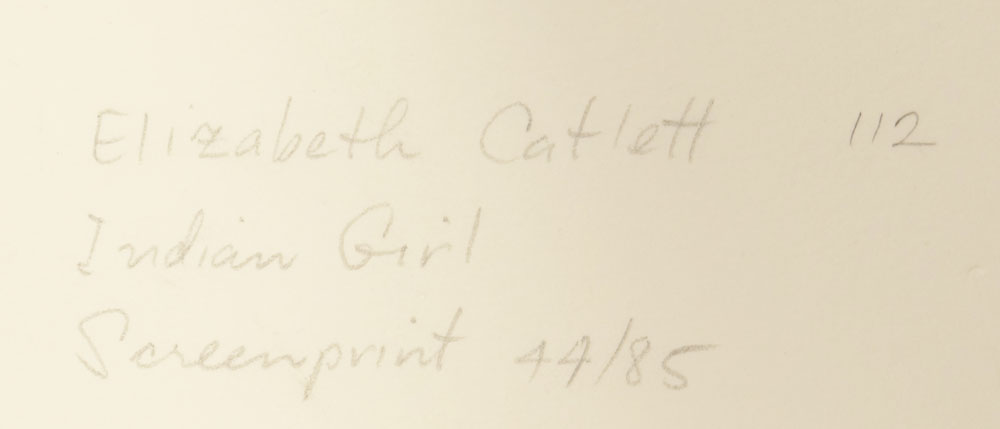 Elizabeth Catlett 112
Indian Girl
Screenprint 44/85